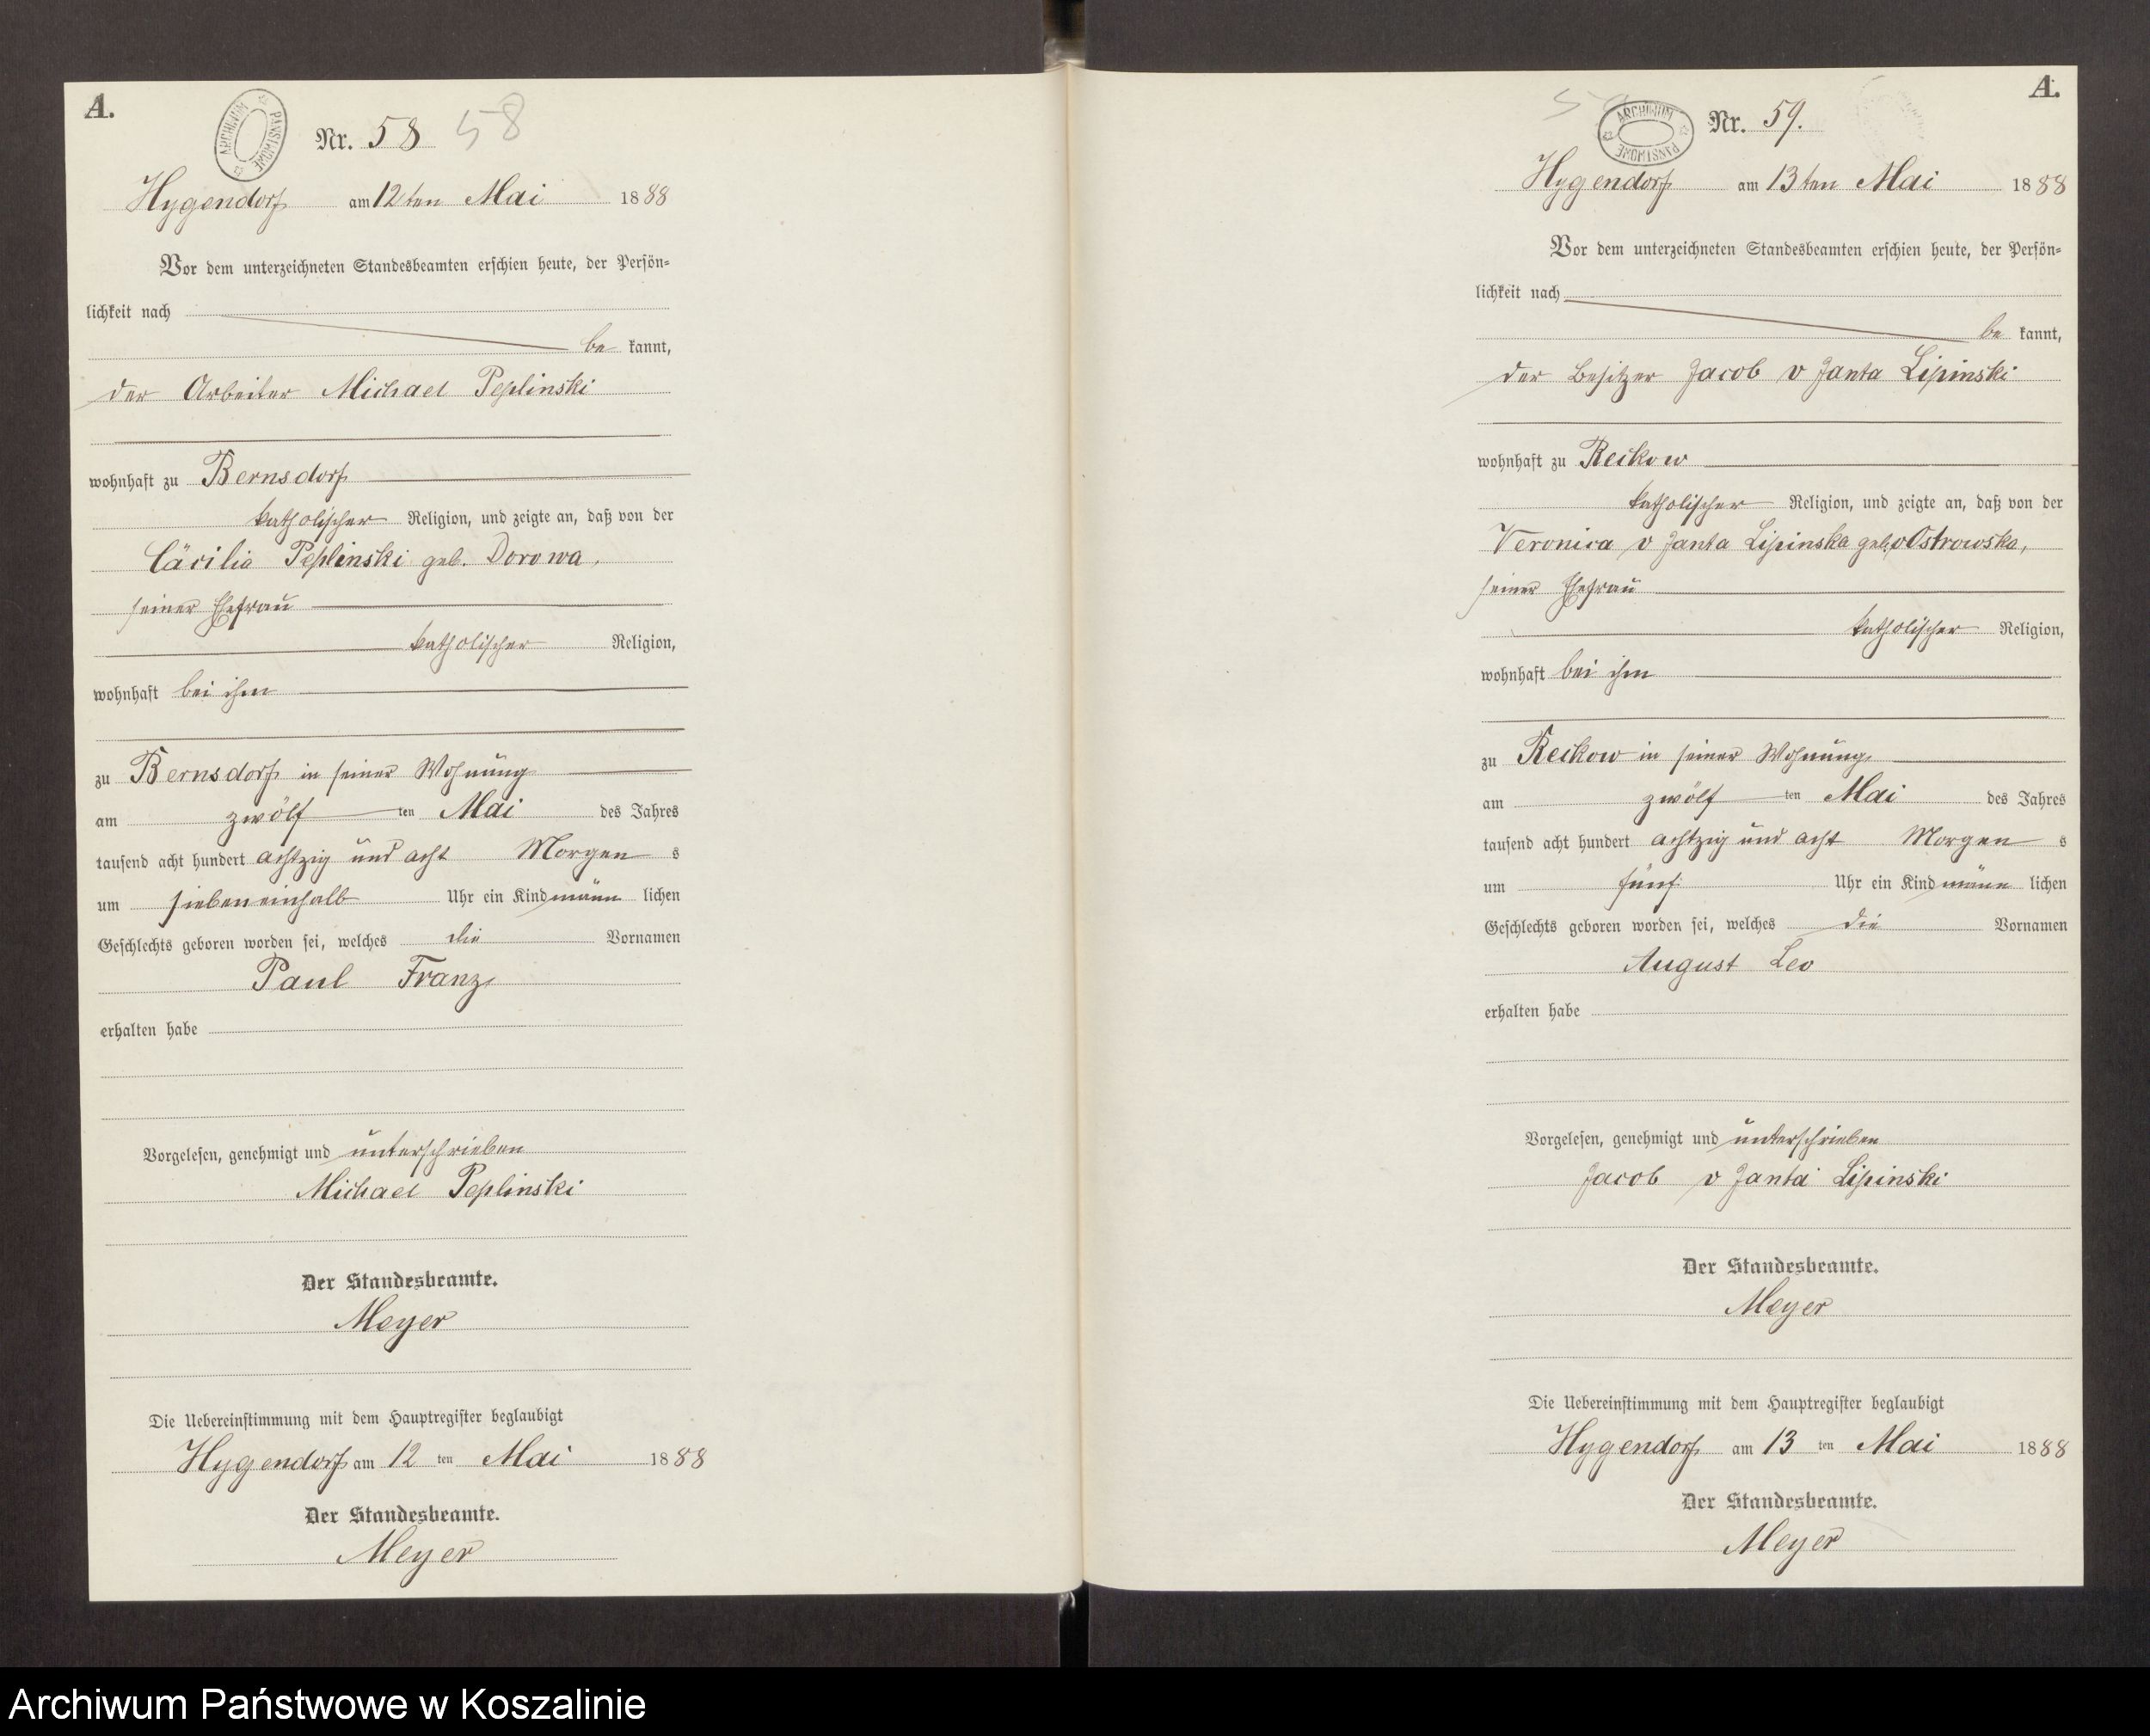 A.
ARCHIWUM PAŃSTWOWE
Nr. 58 58
Hygendorf am 12ten Mai 1888
Vor dem unterzeichneten Standesbeamten erschien heute, der Persön-
lichkeit nach
be kannt,
der Arbeiter Michael Peplinski
wohnhaft zu Bernsdorf
katholischer Religion, und zeigte an, daß von der
Cäcilia Peplinski geb. Dorowa,
seiner Ehefrau
katholischer Religion,
wohnhaft bei ihm
zu Bernsdorf in seiner Wohnung
am zwölf ten Mai des Jahres
tausend acht hundert achtzig und acht Morgen s
um siebeneinhalb Uhr ein Kind männ lichen
Geschlechts geboren worden sei, welches die Vornamen
Paul Franz
erhalten habe
Vorgelesen, genehmigt und unterschrieben
Michael Peplinski
Der Standesbeamte.
Meyer
Die Uebereinstimmung mit dem Hauptregister beglaubigt
Hygendorf am 12 ten Mai 1888
Der Standesbeamte.
Meyer
A.
ARCHIWUM PAŃSTWOWE
Nr. 59.
Hygendorf am 13ten Mai 1888
Vor dem unterzeichneten Standesbeamten erschien heute, der Persön-
lichkeit nach
be kannt,
der Besitzer Jacob v Janta Lipinski
wohnhaft zu Reckow
katholischer Religion, und zeigte an, daß von der
Veronica v Janta Lipinska geb. v Ostrowska,
seiner Ehefrau
katholischer Religion,
wohnhaft bei ihm
zu Reckow in seiner Wohnung
am zwölf ten Mai des Jahres
tausend acht hundert achtzig und acht Morgen s
um fünf Uhr ein Kind männ lichen
Geschlechts geboren worden sei, welches die Vornamen
August Leo
erhalten habe
Vorgelesen, genehmigt und unterschrieben
Jacob v Janta Lipinski
Der Standesbeamte.
Meyer
Die Uebereinstimmung mit dem Hauptregister beglaubigt
Hygendorf am 13 ten Mai 1888
Der Standesbeamte.
Meyer
Archiwum Państwowe w Koszalinie